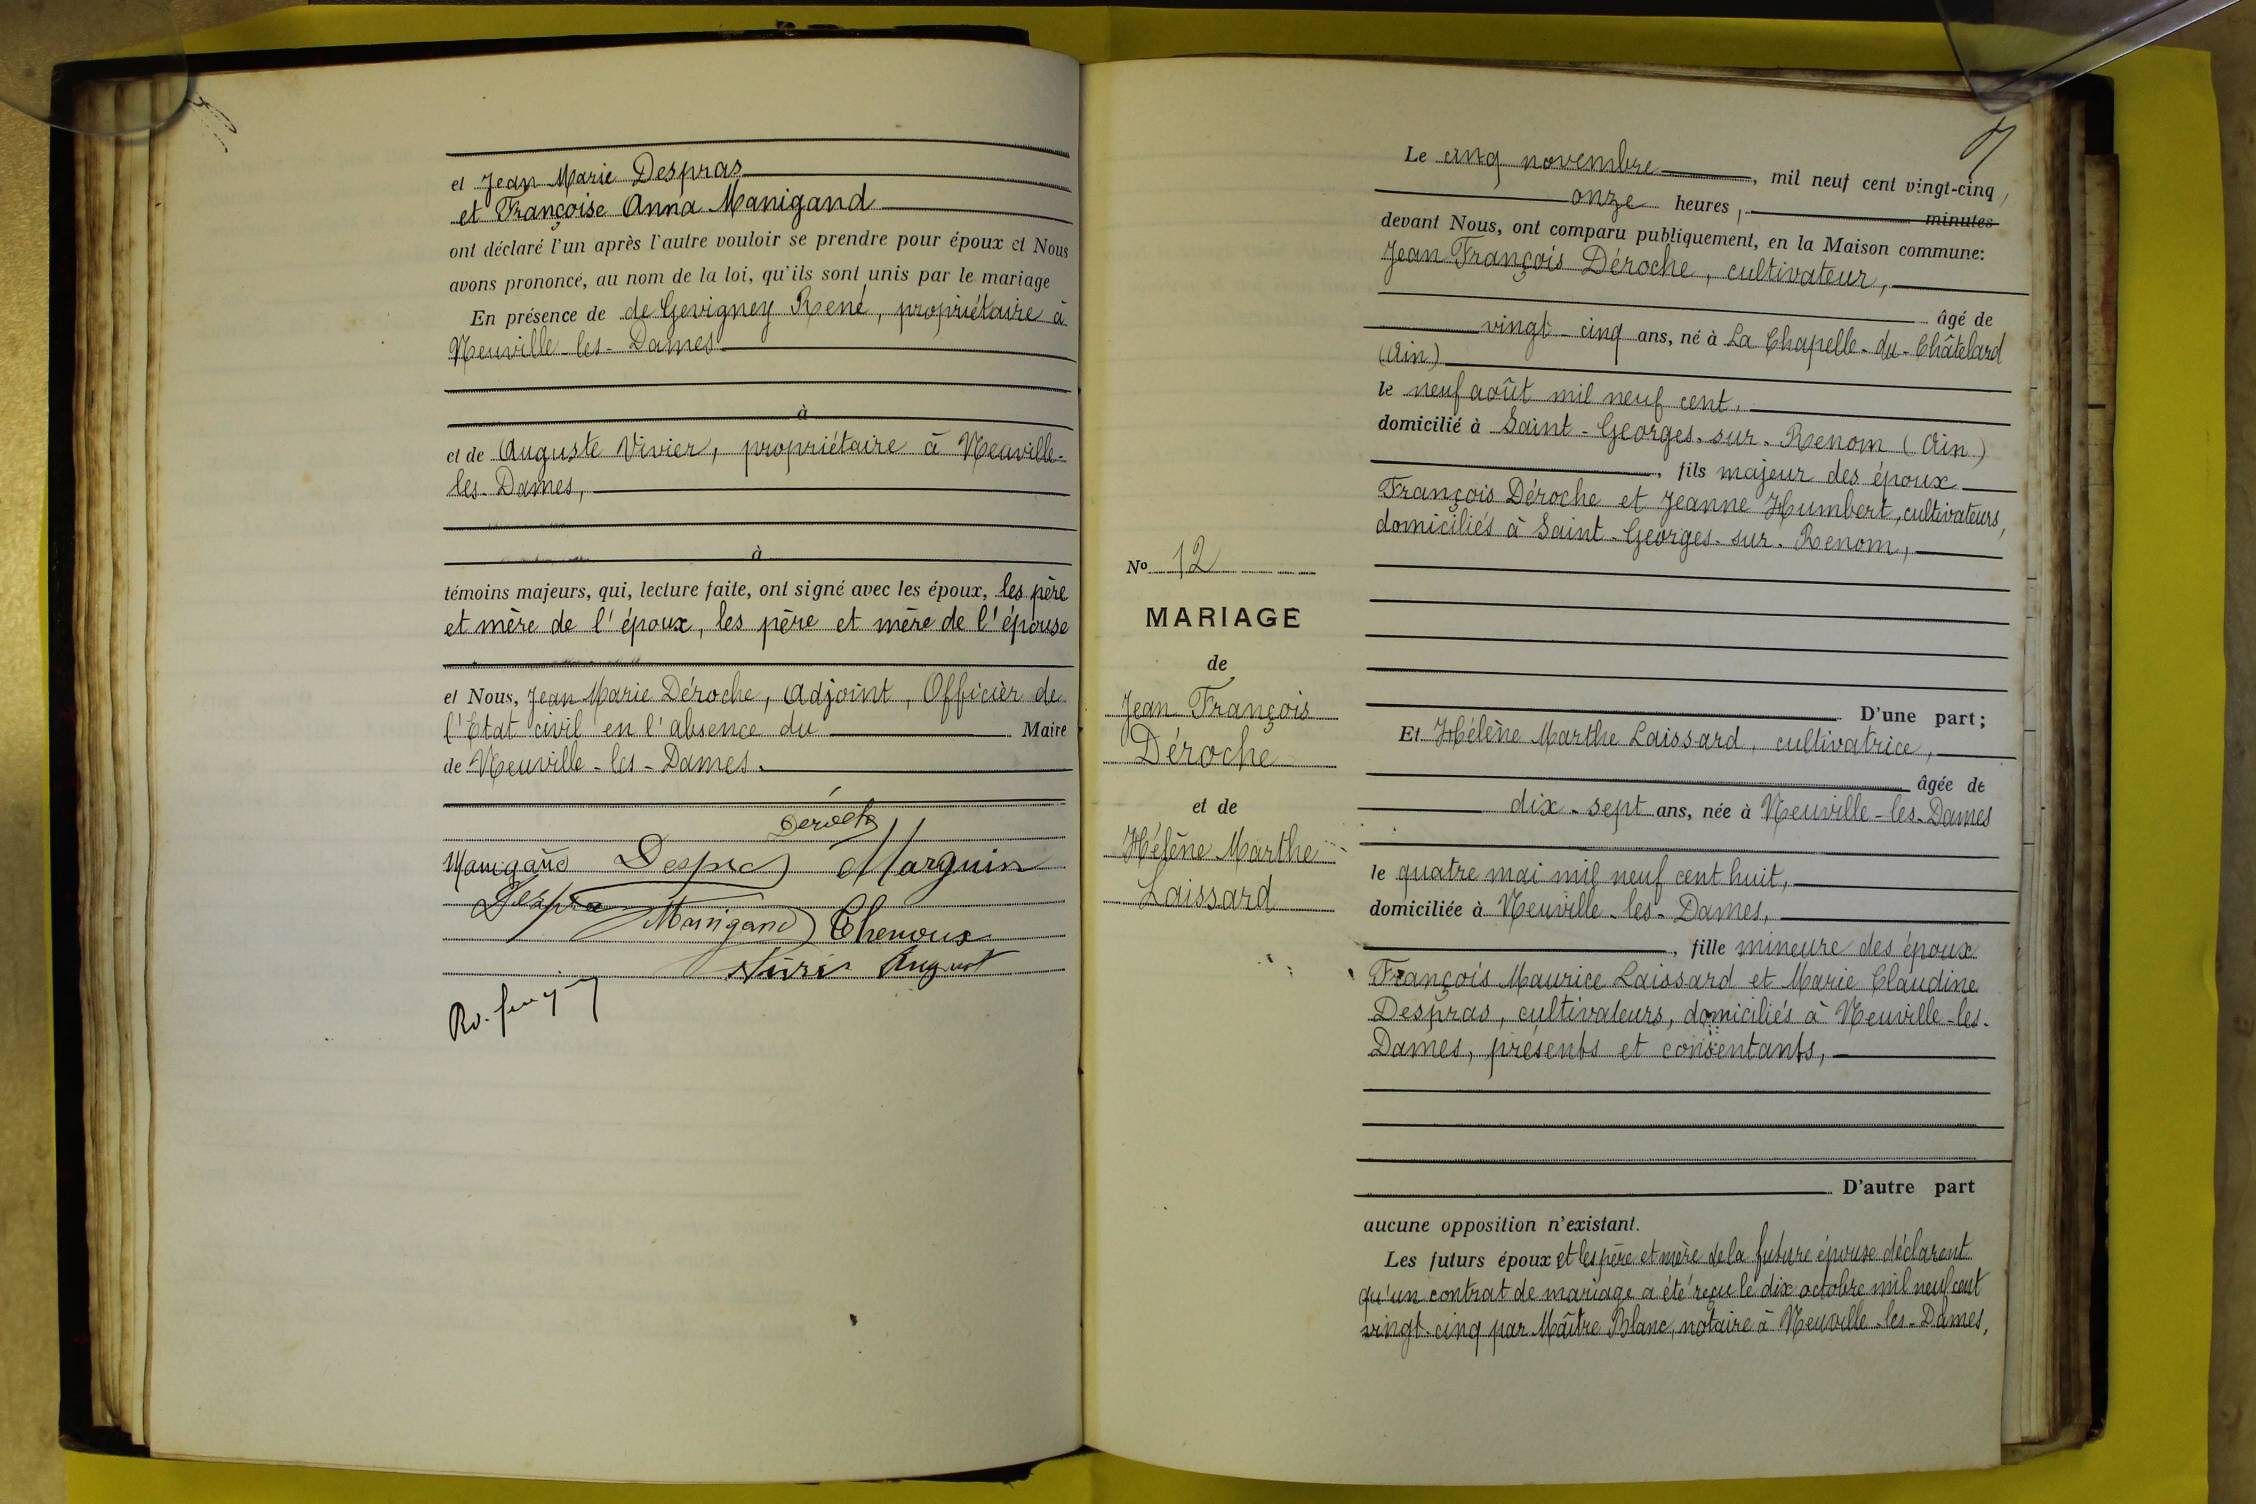 et Jean Marie Despras
et Françoise Anna Manigand
ont déclaré l'un après l'autre vouloir se prendre pour époux et Nous
avons prononcé, au nom de la loi, qu'ils sont unis par le mariage
En présence de de Gevigney René, propriétaire à
Neuville-les-Dames
à
et de Auguste Vivier, propriétaire à Neuville-
les-Dames,
à
témoins majeurs, qui, lecture faite, ont signé avec les époux, les père
et mère de l'époux, les père et mère de l'épouse
et Nous, Jean Marie Déroche, Adjoint, Officier de
l'Etat civil en l'absence du Maire
de Neuville-les-Dames.
Manigand Despras Marguin
Manigand Thenoux
7
Le cinq novembre, mil neuf cent vingt-cinq,
onze heures, minutes
devant Nous, ont comparu publiquement, en la Maison commune:
Jean François Déroche, cultivateur,
âgé de
vingt-cinq ans, né à La Chapelle-du-Châtelard
(Ain)
le neuf août mil neuf cent,
domicilié à Saint-Georges-sur-Renom (Ain)
, fils majeur des époux
François Déroche et Jeanne Humbert, cultivateurs,
domiciliés à Saint-Georges-sur-Renom,
D'une part;
Et Hélène Marthe Laissard, cultivatrice,
âgée de
dix-sept ans, née à Neuville-les-Dames
le quatre mai mil neuf cent huit,
domiciliée à Neuville-les-Dames,
, fille mineure des époux
François Maurice Laissard et Marie Claudine
Despras, cultivateurs, domiciliés à Neuville-les-
Dames, présents et consentants,
D'autre part
aucune opposition n'existant.
Les futurs époux et les père et mère de la future épouse déclarent
qu'un contrat de mariage a été reçu le dix octobre mil neuf cent
vingt-cinq par Maître Blanc, notaire à Neuville-les-Dames,
No 12
MARIAGE
de
Jean François
Déroche
et de
Hélène Marthe
Laissard